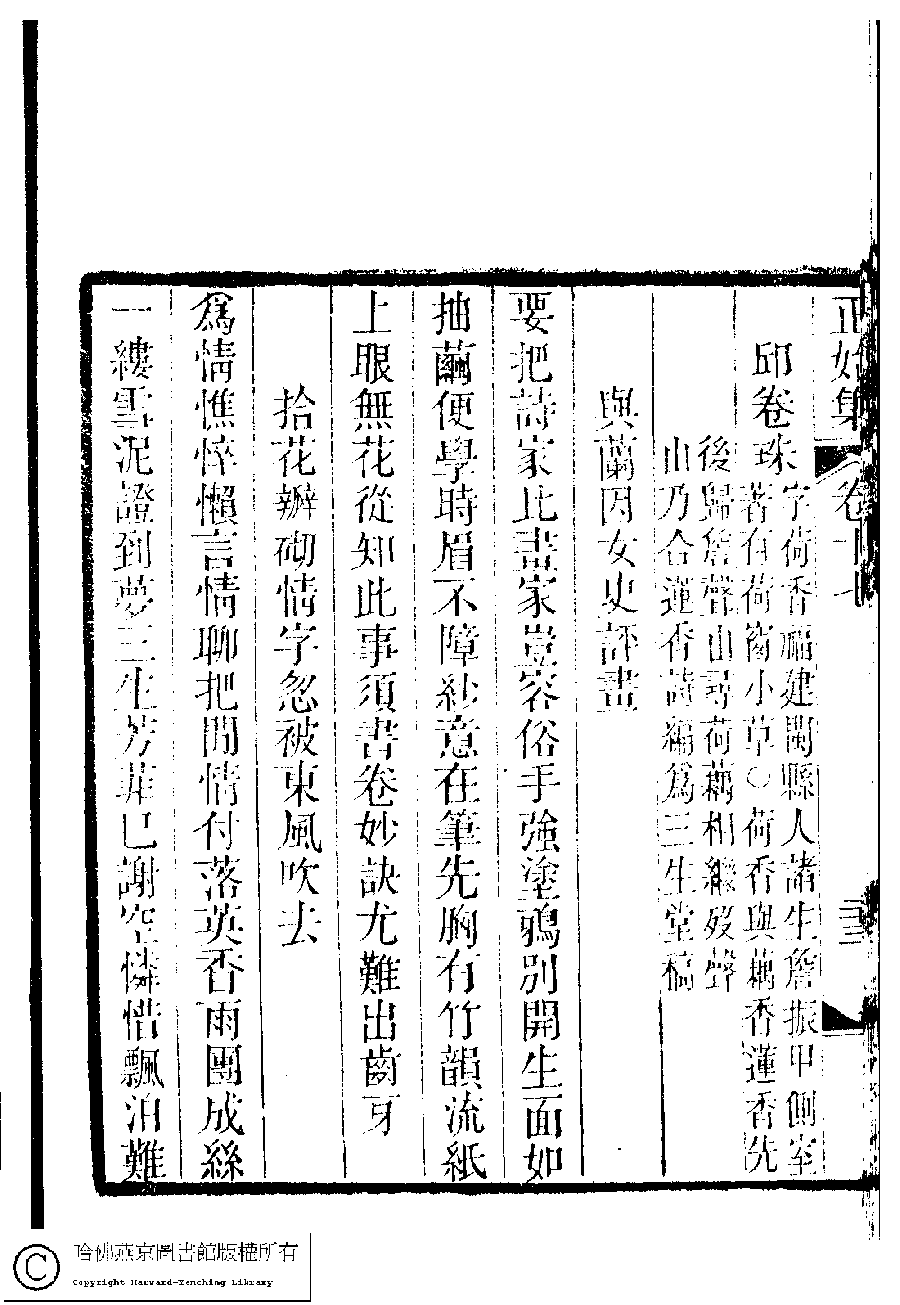 正始集
卷十七
三
邱卷珠
字荷香福建閩縣人諸生詹振甲側室
著有荷窗小草○荷香與藕香蓮香先
後歸詹聲山尋荷藕相繼歿聲
山乃合蓮香詩編爲三生堂稿
與蘭因女史評畫
要把詩家比畫家豈容俗手強塗鴉別開生面如
抽繭便學時眉不障紗意在筆先胸有竹韻流紙
上眼無花從知此事須書卷妙訣尤難出齒牙
拾花瓣砌情字忽被東風吹去
爲情憔悴懶言情聊把閒情付落英香雨團成絲
一縷雪泥證到夢三生芳菲已謝空憐惜飄泊難
哈佛燕京圖書館版權所有
Copyright Harvard-Yenching Library